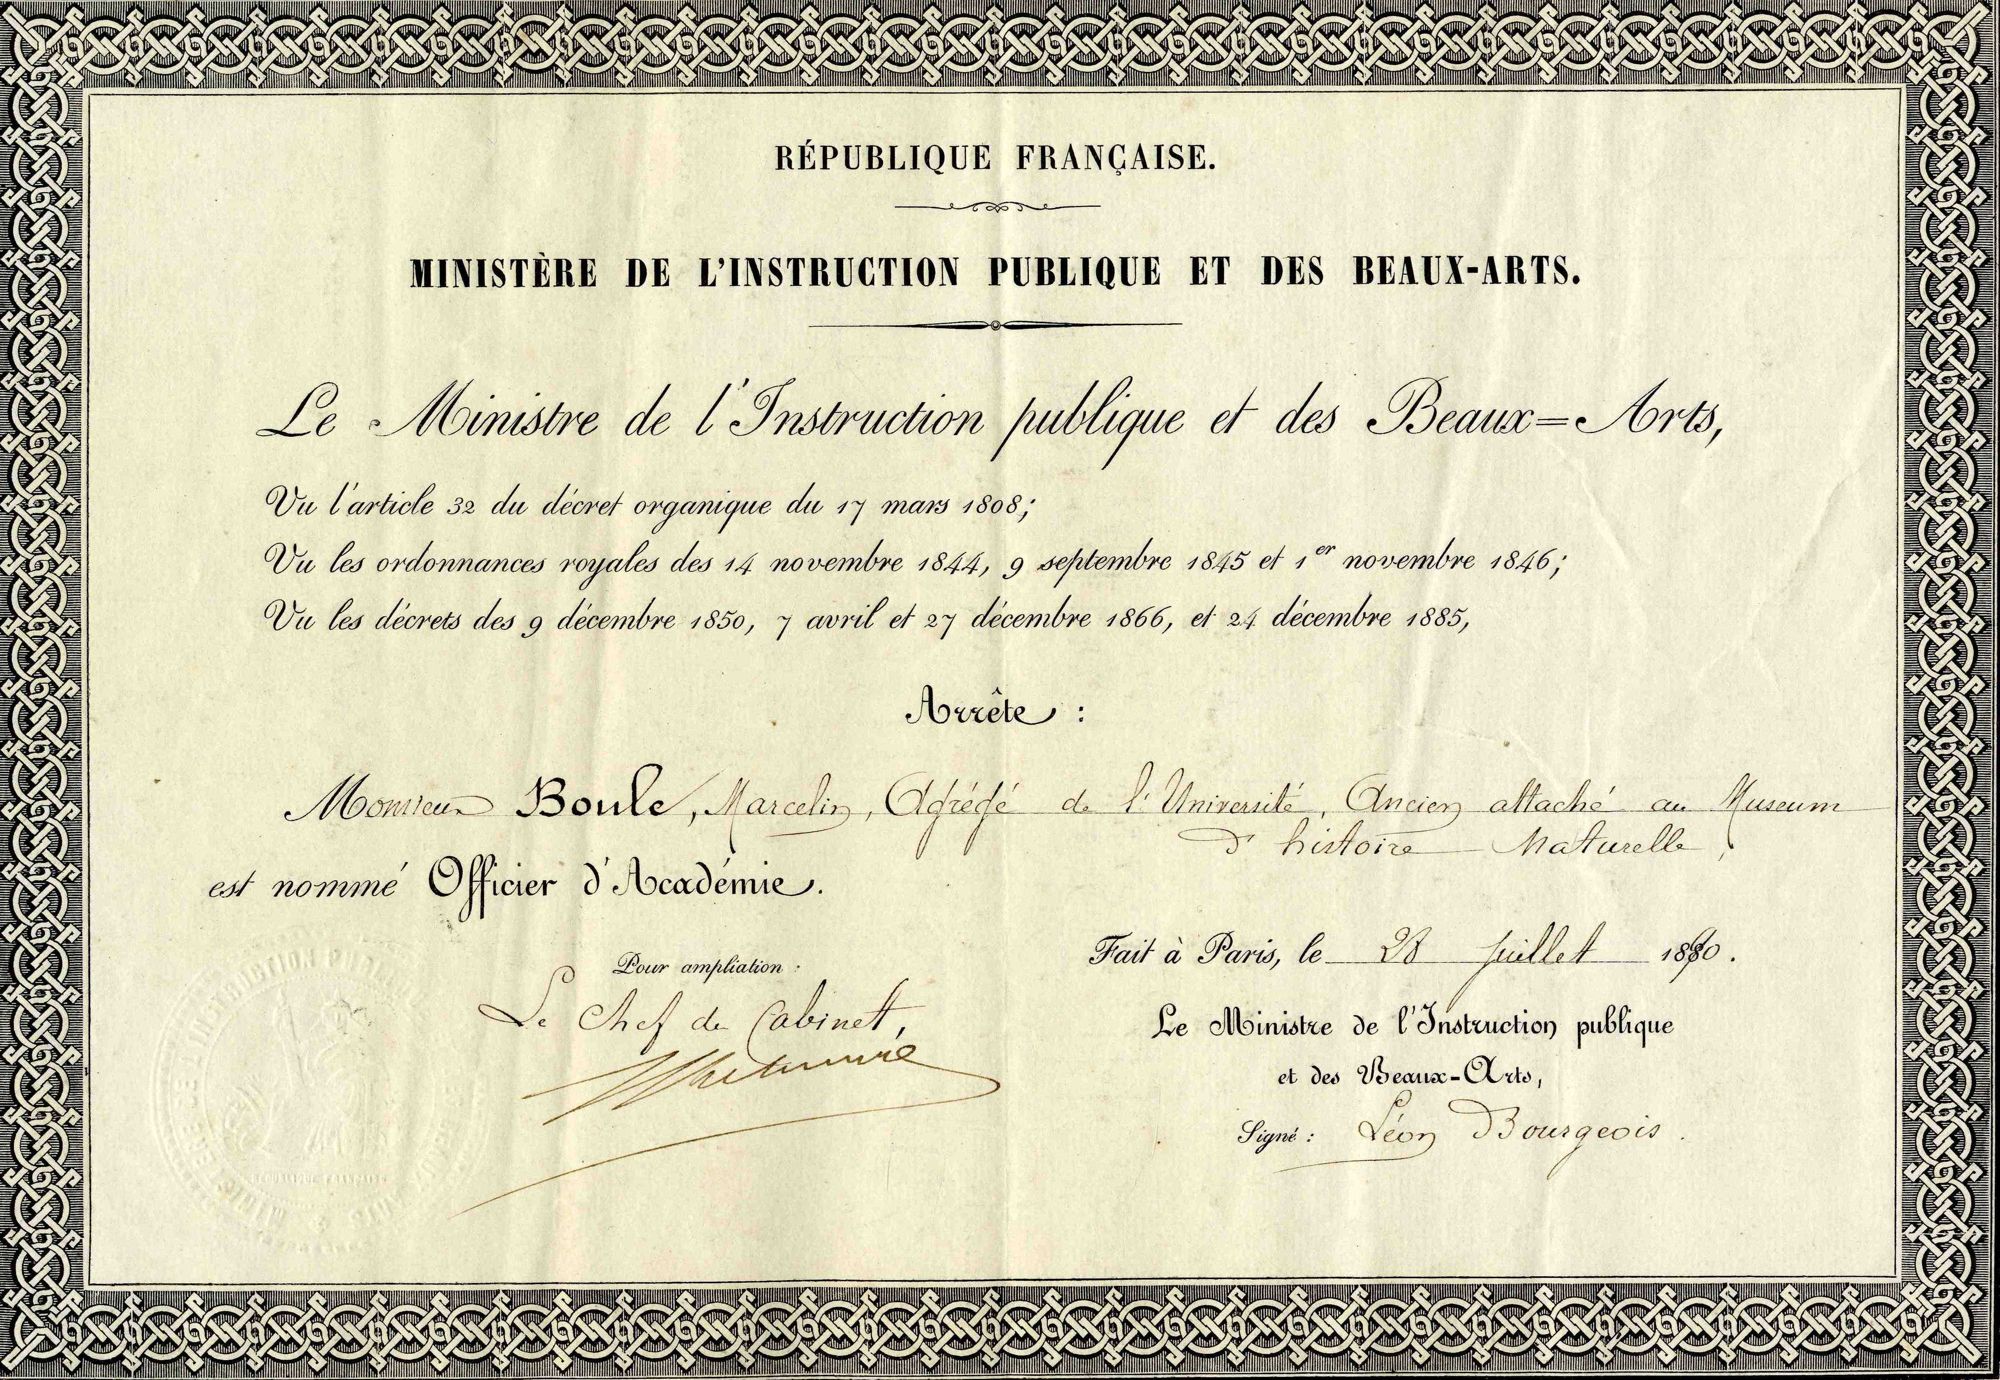 RÉPUBLIQUE FRANÇAISE.
MINISTÈRE DE L'INSTRUCTION PUBLIQUE ET DES BEAUX-ARTS.
Le Ministre de l'Instruction publique et des Beaux=Arts,
Vu l'article 32 du décret organique du 17 mars 1808;
Vu les ordonnances royales des 14 novembre 1844, 9 septembre 1845 et 1er novembre 1846;
Vu les décrets des 9 décembre 1850, 7 avril et 27 décembre 1866, et 24 décembre 1885,
Arrête :
Monsieur Boule, Marcelin, Agrégé de l'Université, Ancien attaché au Museum
d'histoire Naturelle,
est nommé Officier d'Académie.
Fait à Paris, le 28 Juillet 1890.
Pour ampliation :
Le Chef de Cabinet,
Le Ministre de l'Instruction publique
et des Beaux-Arts,
Signé : Léon Bourgeois.
INSTRUCTION PUBLIQUE
RÉPUBLIQUE FRANÇAISE